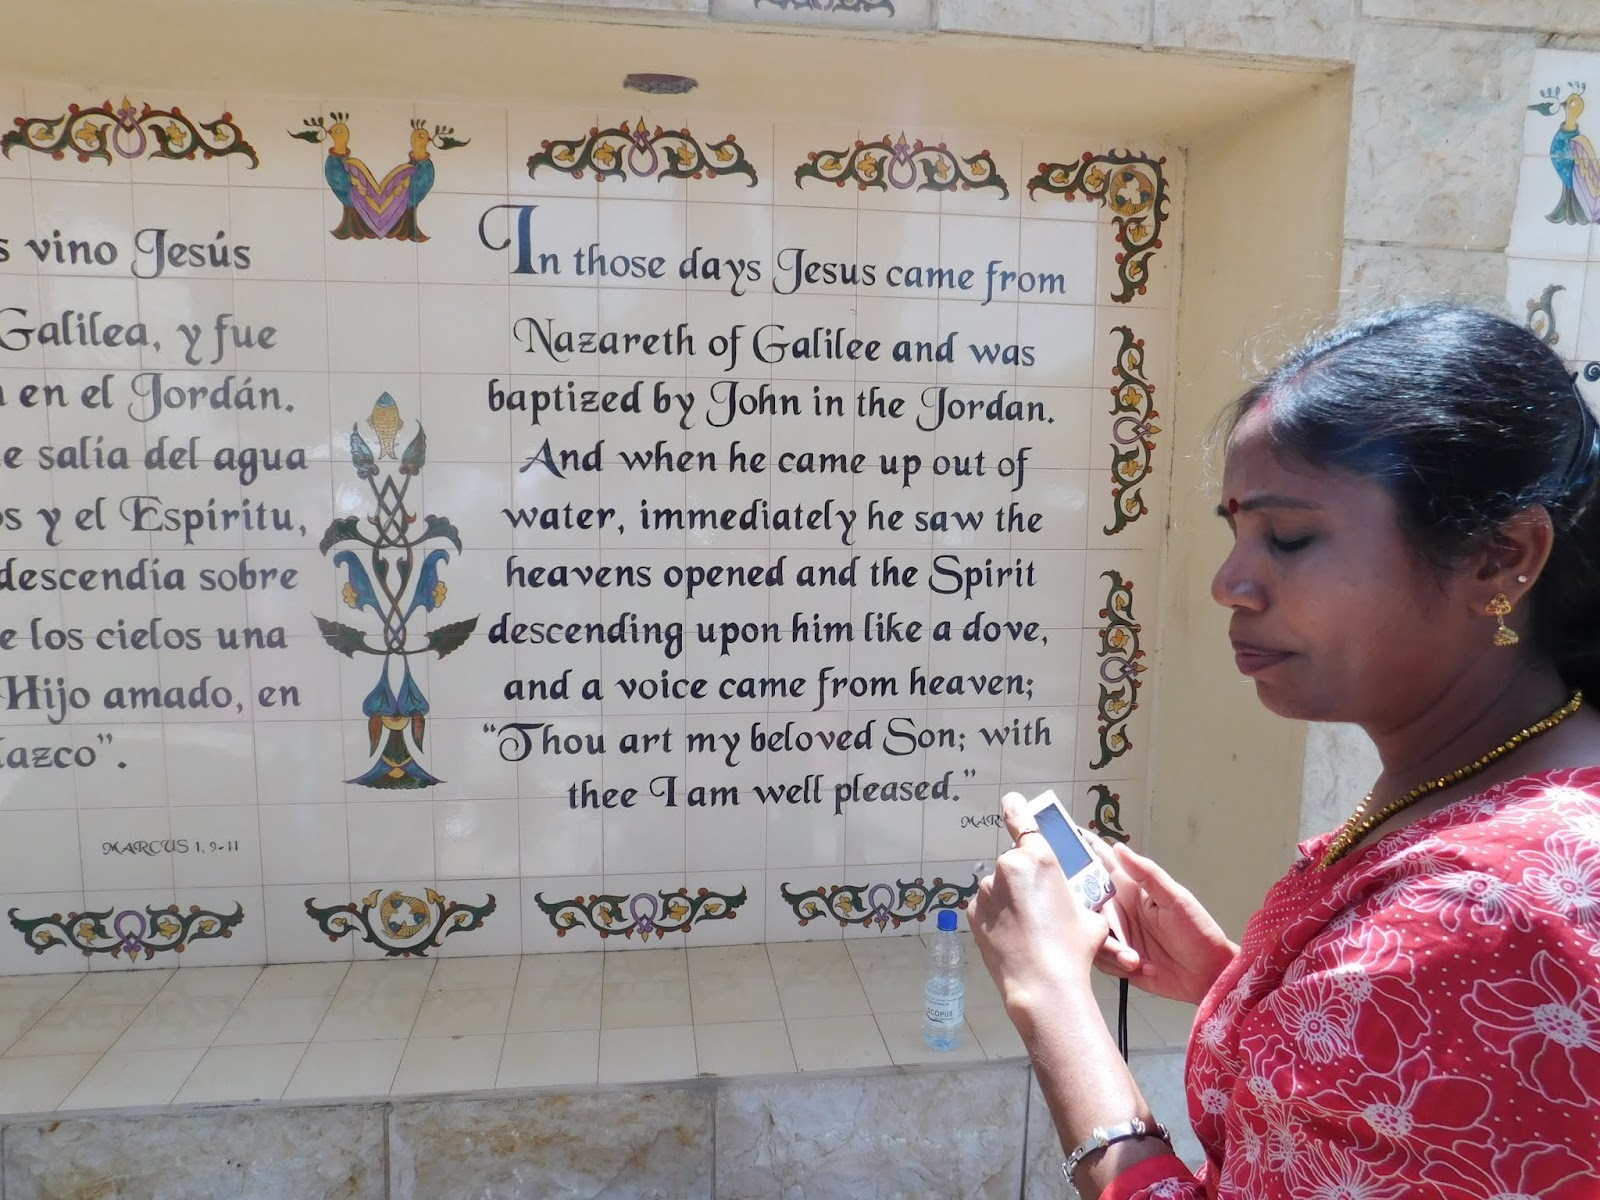 vino Jesús
Galilea, y fue
en el Jordán.
salía del agua
y el Espíritu,
descendía sobre
los cielos una
Hijo amado, en
MARCUS 1, 9-11
In those days Jesus came from
Nazareth of Galilee and was
baptized by John in the Jordan.
And when he came up out of
water, immediately he saw the
heavens opened and the Spirit
descending upon him like a dove,
and a voice came from heaven;
“Thou art my beloved Son; with
thee I am well pleased.”